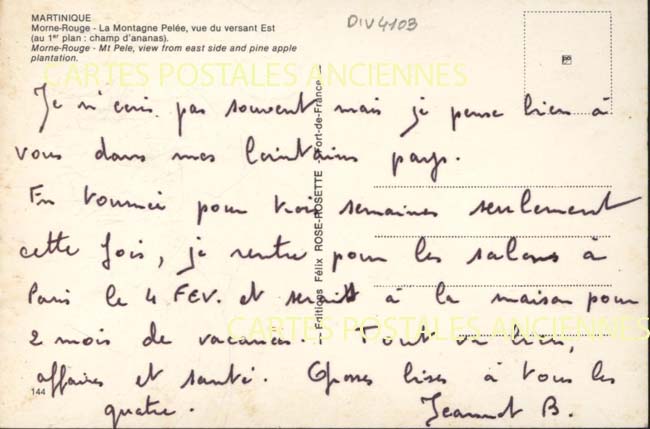 MARTINIQUE
Morne-Rouge - La Montagne Pelée, vue du versant Est
(au 1er plan : champ d'ananas).
Morne-Rouge - Mt Pele, view from east side and pine apple
plantation.
DIV4103
CARTES POSTALES ANCIENNES
Je n'écris pas souvent mais je pense bien à
vous dans mes lointains pays.
En tournée pour trois semaines seulement
cette fois, je rentre pour les salons à
Paris le 4 FEV. et serait à la maison pour
2 mois de vacances. Tout va bien,
affaires et santé. Grosses bises à tous les
quatre. Jeannot B.
Editions Félix ROSE-ROSETTE - Fort-de-France -
CARTES POSTALES ANCIENNES
144